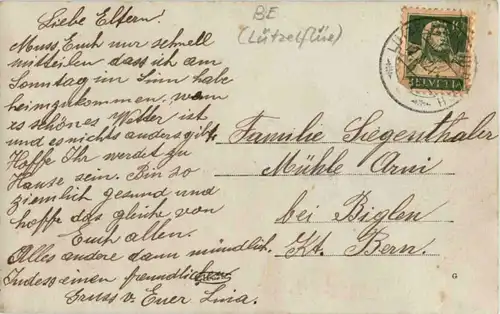 Liebe Eltern.
Muss Euch nur schnell
mitteilen dass ich am
Sonntag im Sinn habe
heimzukommen. wenn
es schönes Wetter ist
und es nichts anders gibt.
Hoffe Ihr werdet zu
Hause sein. Bin so
ziemlich gesund und
hoffe das gleiche von
Euch allen.
Alles andere dann mündlich.
Indess einen freundlichen
Gruss v. Euer Lina.
BE
(Lützelflüe)
HELVETIA
Familie Siegenthaler
Mühle Arni
bei Biglen
Kt. Bern.
G